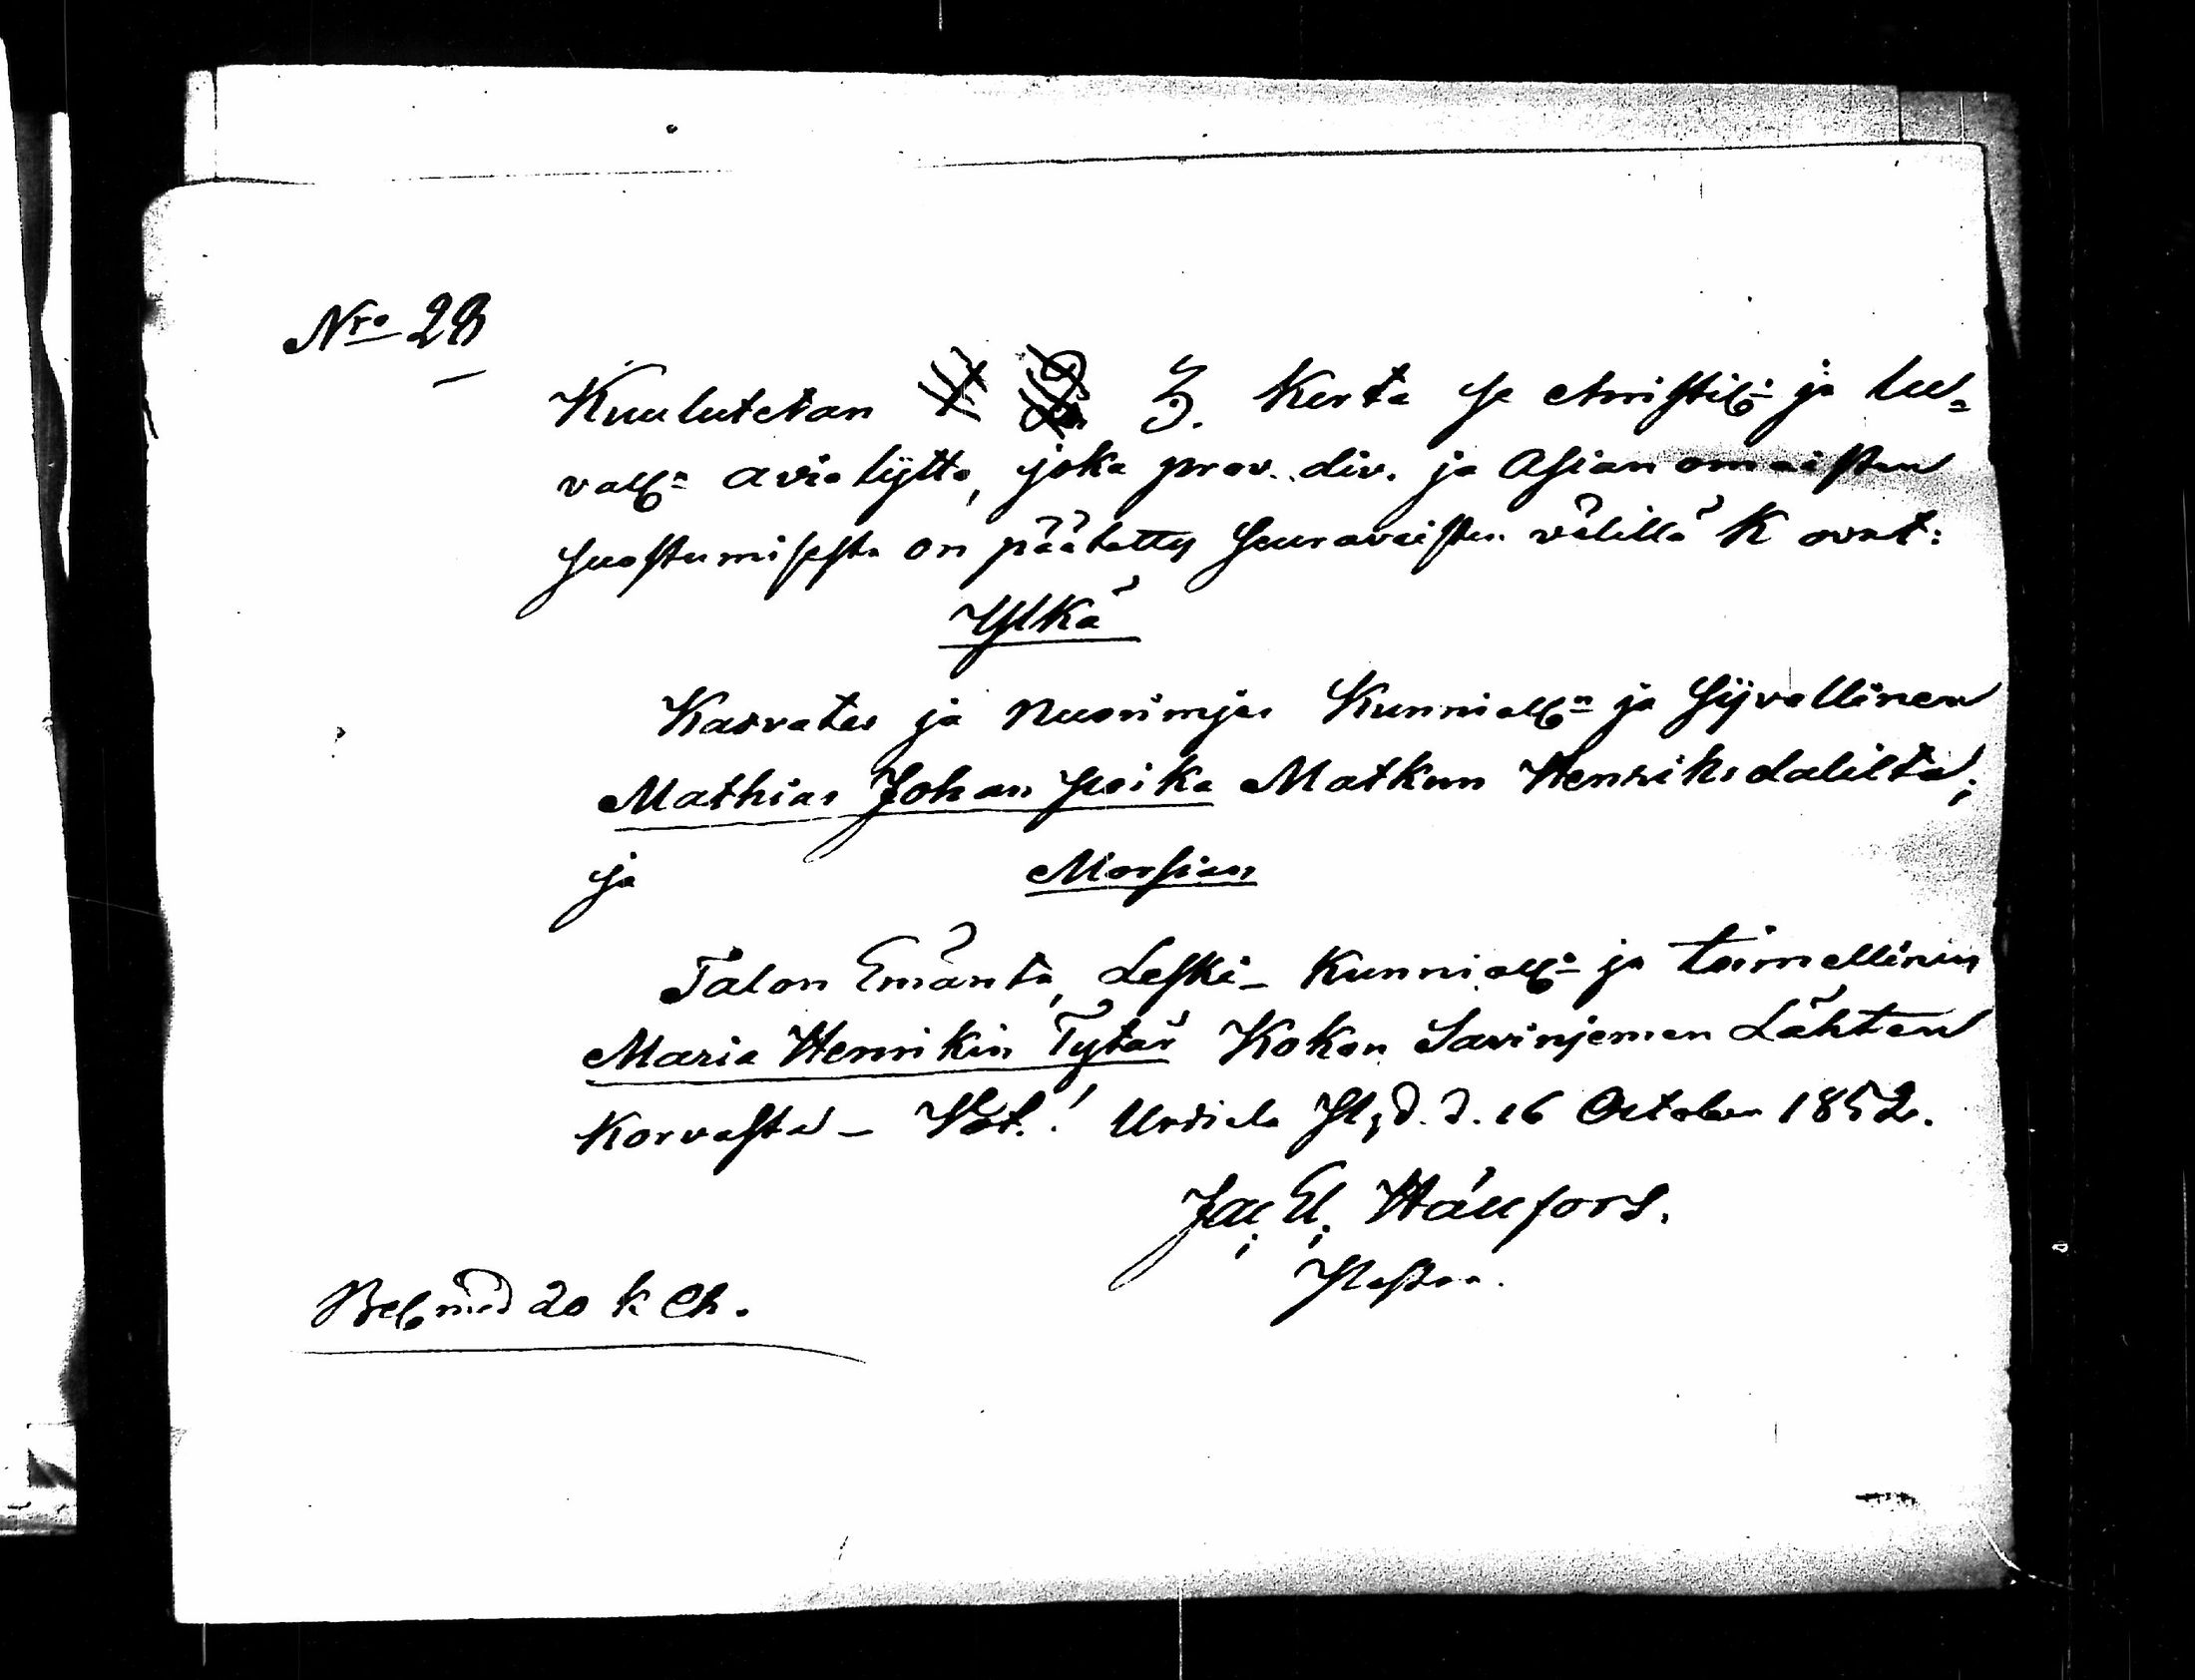 Nro 28
Kuulutetan 3. Kerta se christil:n ja lu-
vall:n avio lijtto, joka prov. div. ja Asian omaisten
suostumisesta on päätetty seuravaisten välillä K ovat:
Ylkä
Kasvates ja nuorimjes Kunniall:n ja Syvellinen
Mathias Johan Poika Matkun Henriksdalilta;
ja Morsian
Talon Emäntä, Leski- Kunniall:n ja toimellinen
Maria Henrikin Tytär Kokon Savinjemen Lähten
Korvasta - Urdiala d. 16 October 1852.
Jac; El; Hällfors.
Pastor.
Bel. med 20 k Ch.